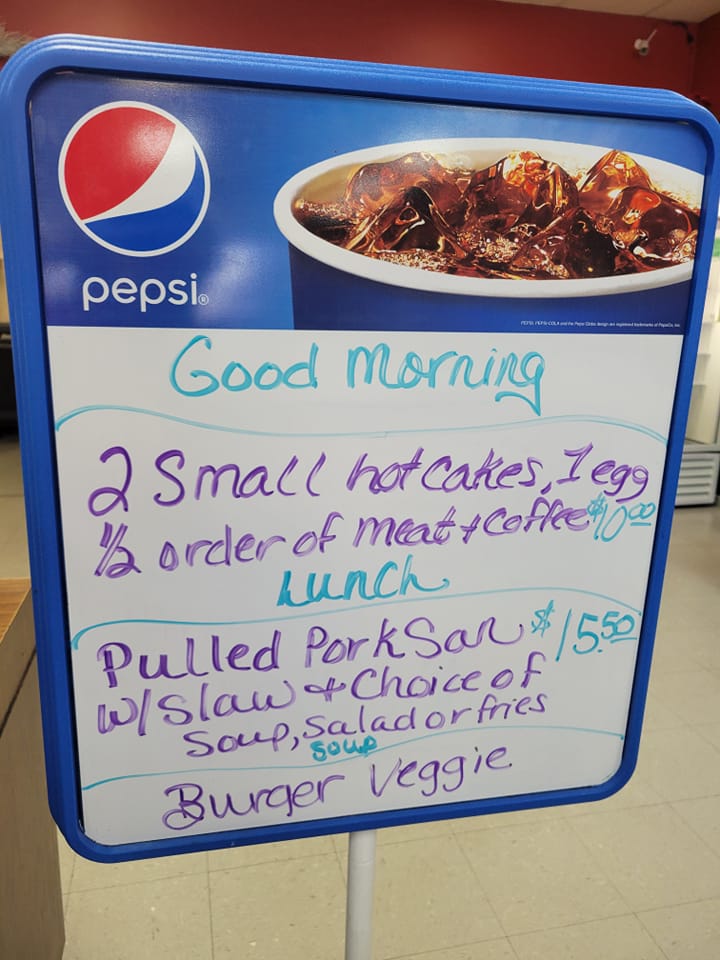 pepsi®
PEPSI, PEPSI-COLA and the Pepsi Globe design are registered trademarks of PepsiCo, Inc.
Good Morning
2 Small hotcakes, 1 egg
½ order of meat + Coffee $10.00
Lunch
Pulled Pork San $15.50
w/Slaw + Choice of
Soup, Salad or fries
soup
Burger Veggie